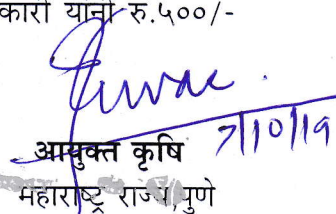 कारी यांनी रु.५००/-
7/10/19
आयुक्त कृषि
महाराष्ट्र राज्य,पुणे